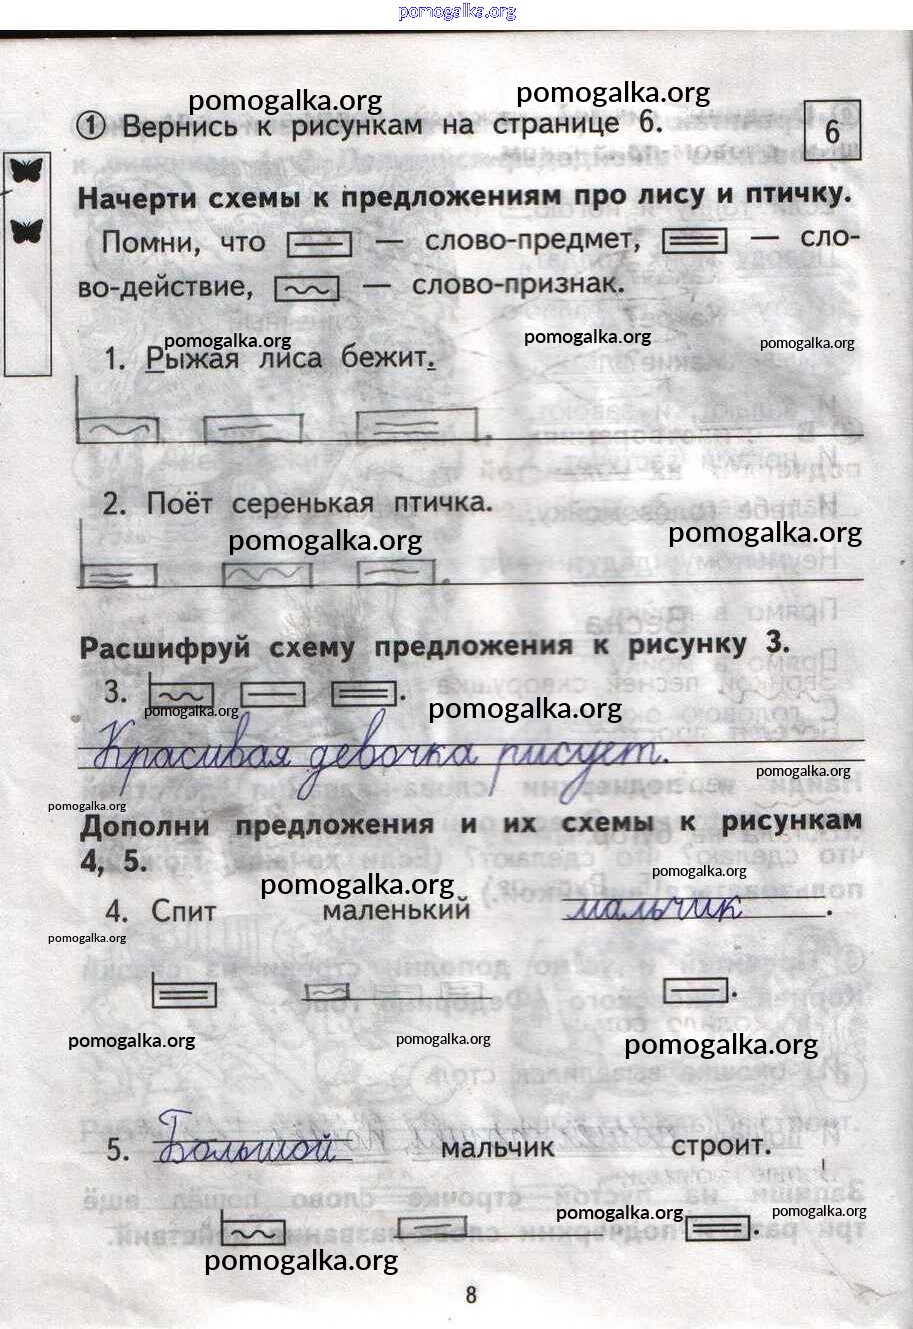 pomogalka.org
pomogalka.org pomogalka.org
1 Вернись к рисункам на странице 6. 6
Начерти схемы к предложениям про лису и птичку.
Помни, что — слово-предмет, — сло-
во-действие, — слово-признак.
pomogalka.org pomogalka.org pomogalka.org
1. Рыжая лиса бежит.
2. Поёт серенькая птичка.
pomogalka.org pomogalka.org
Расшифруй схему предложения к рисунку 3.
3. .
pomogalka.org pomogalka.org
Красивая девочка рисует.
pomogalka.org
pomogalka.org
Дополни предложения и их схемы к рисункам
4, 5.
pomogalka.org pomogalka.org
4. Спит маленький мальчик.
pomogalka.org
pomogalka.org pomogalka.org pomogalka.org
5. Большой мальчик строит.
pomogalka.org pomogalka.org
pomogalka.org
8